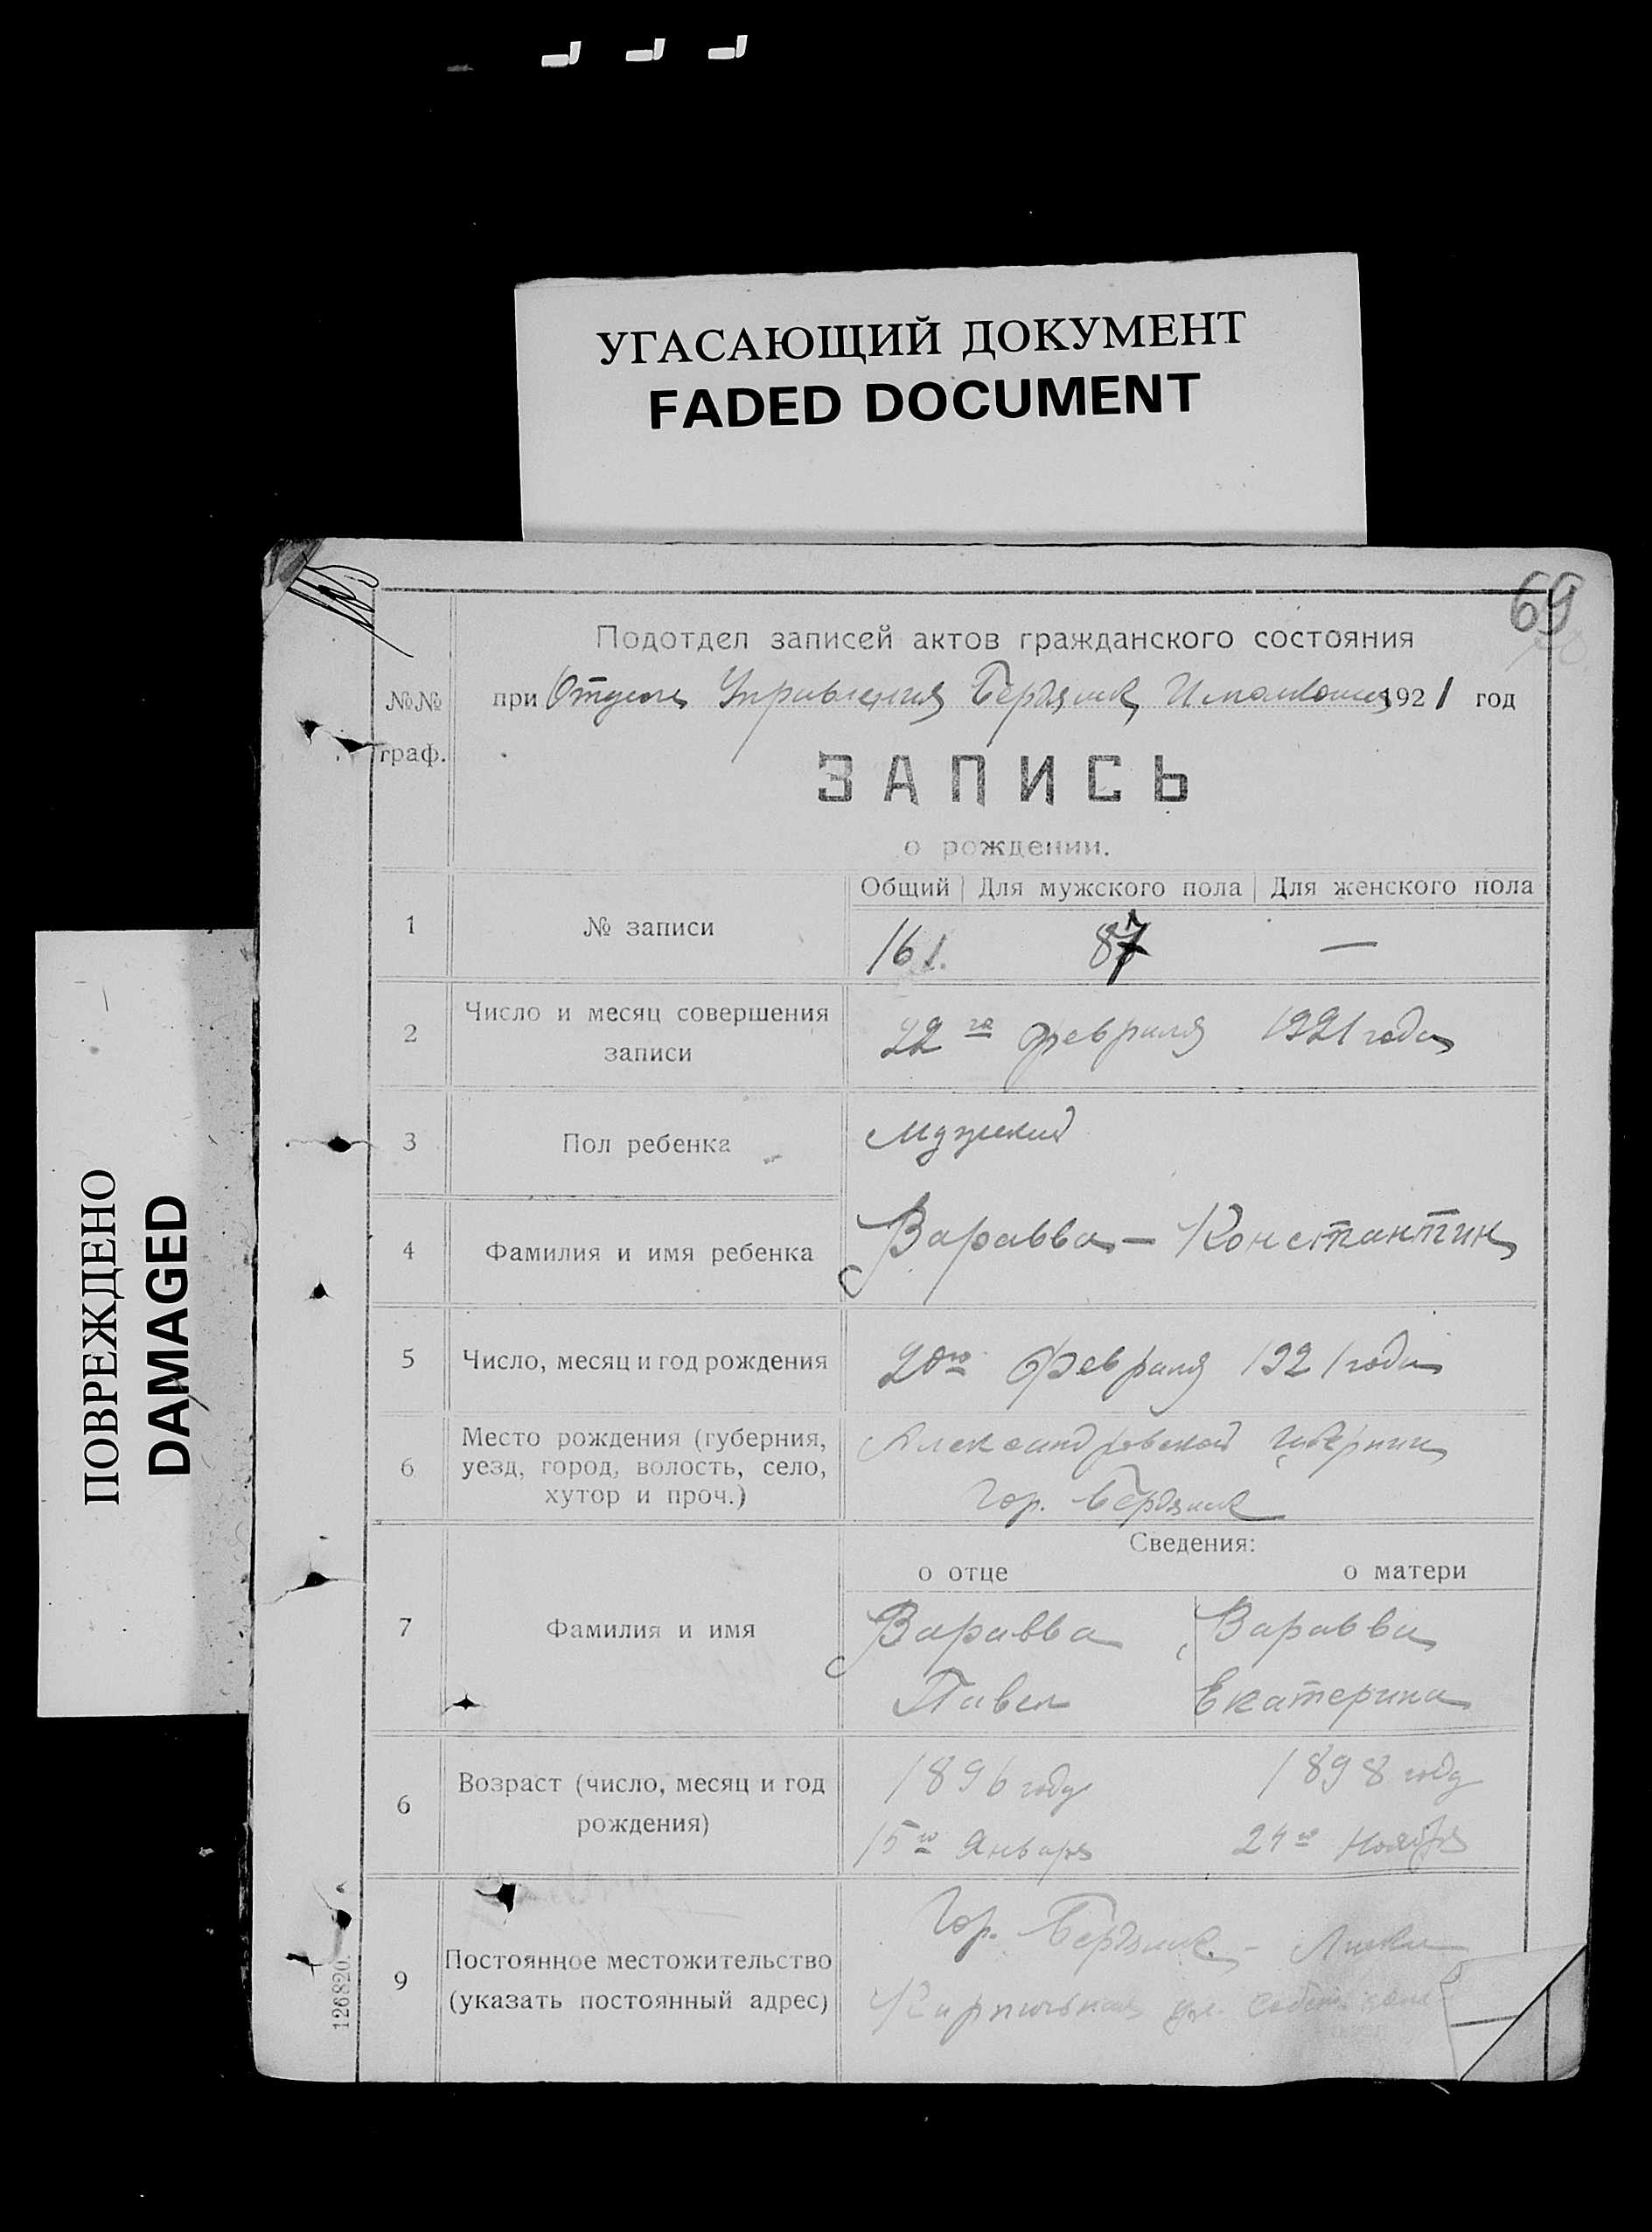 УГАСАЮЩИЙ ДОКУМЕНТ
FADED DOCUMENT
ПОВРЕЖДЕНО
DAMAGED
69
Подотдел записей актов гражданского состояния
№№ граф.
при Отделе Управления Бердянск. Исполкома 1921 год
ЗАПИСЬ
о рождении.
Общий Для мужского пола Для женского пола
1 № записи 161. 87 —
2 Число и месяц совершения записи 22го февраля 1921 года
3 Пол ребенка Мужской
4 Фамилия и имя ребенка Варавва — Константин
5 Число, месяц и год рождения 20го февраля 1921 года
6 Место рождения (губерния, уезд, город, волость, село, хутор и проч.) Александровской губернии
гор. Бердянск
Сведения:
о отце о матери
7 Фамилия и имя Варавва Варавва
Павел Екатерина
6 Возраст (число, месяц и год рождения) 1896 году 1898 году
15го Января 24го Ноября
9 Постоянное местожительство (указать постоянный адрес) Гор. Бердянск. — Лиски
ул. собств.
126820.